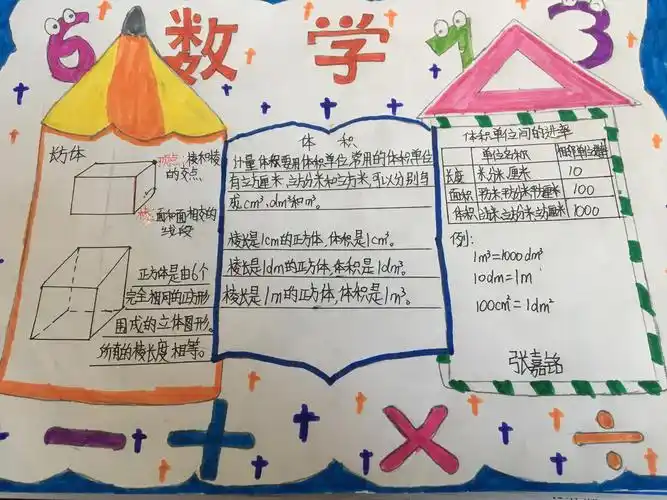 6 数 学 1 3
长方体
顶点:棱和棱
的交点
棱:面和面相交的
线段
正方体是由6个
完全相同的正方形
围成的立体图形。
所有的棱长度相等。
体 积
计量体积要用体积单位,常用的体积单位
有立方厘米、立方分米和立方米,可以分别写
成cm³、dm³和m³。
棱长是1cm的正方体,体积是1cm³。
棱长是1dm的正方体,体积是1dm³。
棱长是1m的正方体,体积是1m³。
体积单位间的进率
单位名称 相邻单位进率
长度 米 分米 厘米 10
面积 平方米 平方分米 平方厘米 100
体积 立方米 立方分米 立方厘米 1000
例:
1m³=1000dm³
10dm=1m
100cm²=1dm²
张嘉铭
− + × ÷